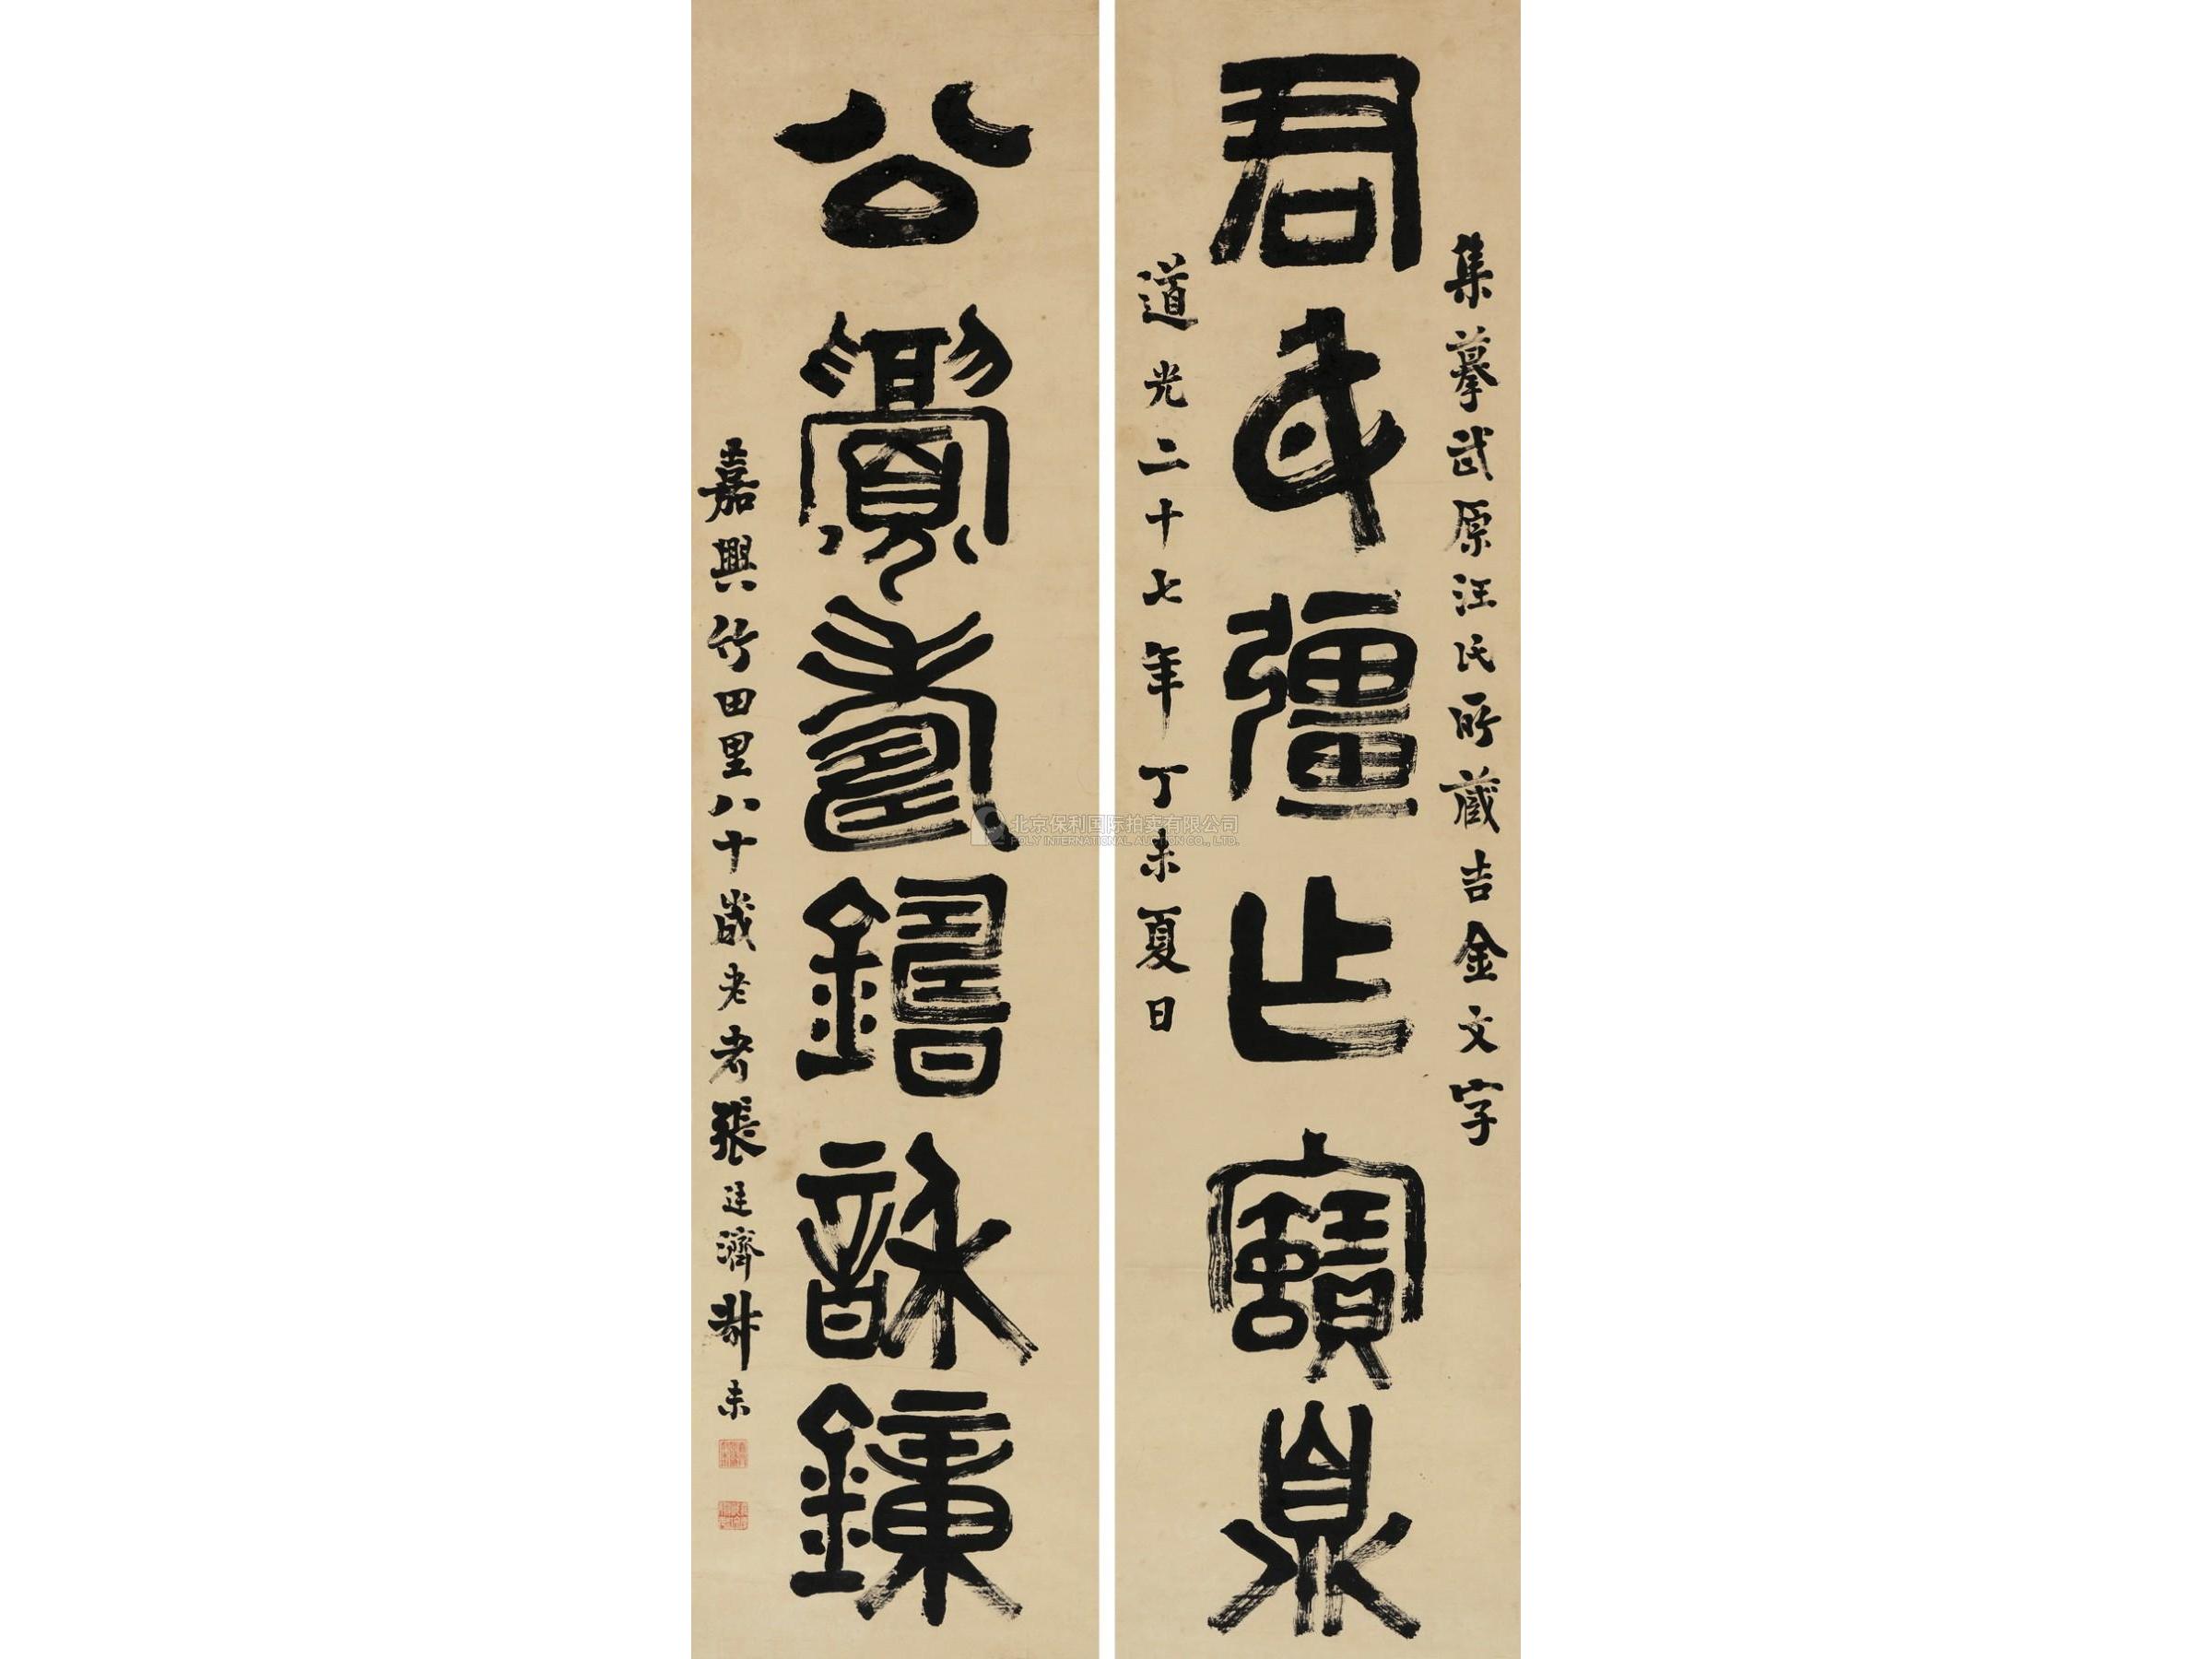 集摹武原汪氏所藏吉金文字
君民彊乍寶鼎
道光二十七年丁未夏日
公眉壽鑄詠鐘
嘉興竹田里八十歲老者張廷濟叔未
北京保利国际拍卖有限公司
POLY INTERNATIONAL AUCTION CO., LTD.